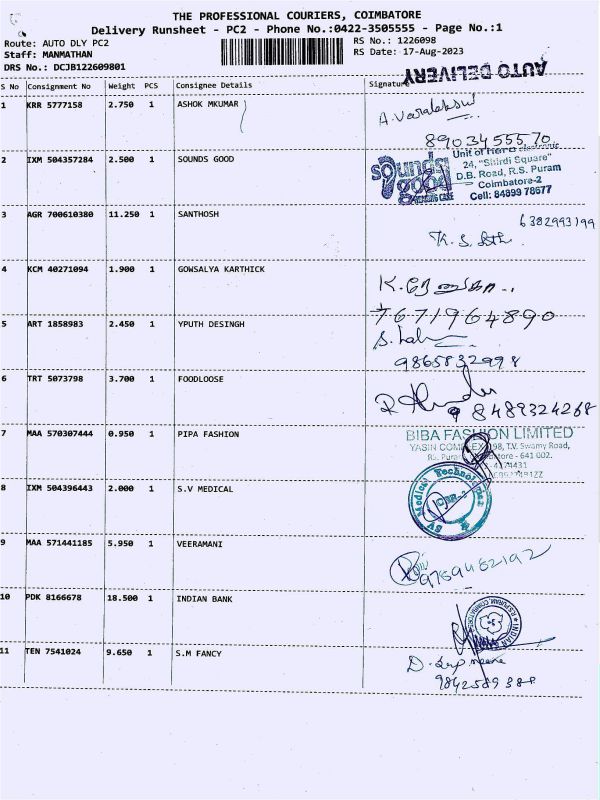 THE PROFESSIONAL COURIERS, COIMBATORE
Delivery Runsheet - PC2 - Phone No.:0422-3505555 - Page No.:1
Route: AUTO DLY PC2
RS No.: 1226098
Staff: MANMATHAN
RS Date: 17-Aug-2023
DRS No.: DCJB122609801
AUTO DELIVERY
S No Consignment No Weight PCS Consignee Details Signature
1 KRR 5777158 2.750 1 ASHOK MKUMAR
8903455570
2 IXM 504357284 2.500 1 SOUNDS GOOD
sounds good
Unit of Hero electronic
24, "Shirdi Square"
D.B. Road, R.S. Puram
Coimbatore-2
Cell: 84899 78677
3 AGR 700610380 11.250 1 SANTHOSH
6382993199
4 KCM 40271094 1.900 1 GOWSALYA KARTHICK
7671964890
5 ART 1858983 2.450 1 YPUTH DESINGH
9865832998
6 TRT 5073798 3.700 1 FOODLOOSE
8489324268
7 MAA 570307444 0.950 1 PIPA FASHION
BIBA FASHION LIMITED
YASIN COMPLEX 98, T.V. Swamy Road,
- 641 002.
8 IXM 504396443 2.000 1 S.V MEDICAL
SV Medical Technologies
CBE-2
9 MAA 571441185 5.950 1 VEERAMANI
9769462192
10 PDK 8166678 18.500 1 INDIAN BANK
11 TEN 7541024 9.650 1 S.M FANCY
9842589388